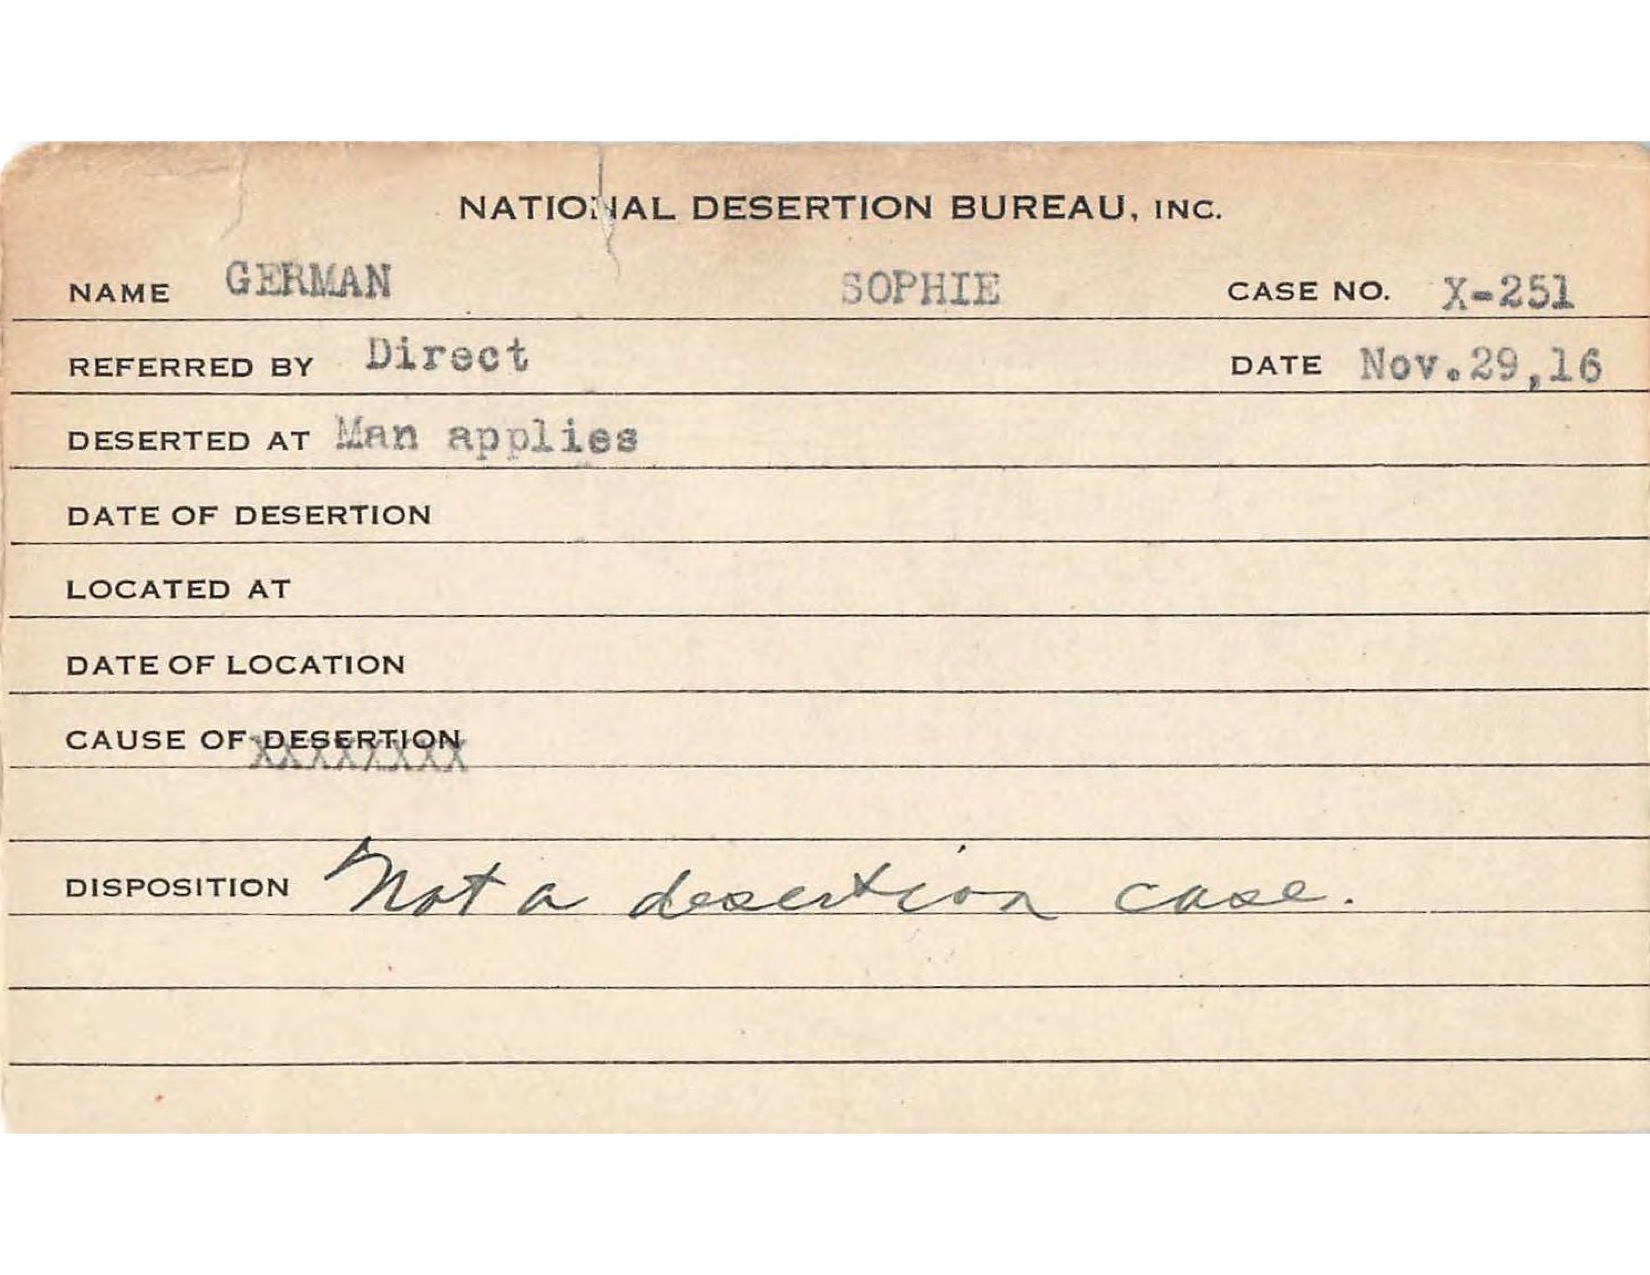 NATIONAL DESERTION BUREAU, INC.
NAME GERMAN SOPHIE CASE NO. X-251
REFERRED BY Direct DATE Nov.29,16
DESERTED AT Man applies
DATE OF DESERTION
LOCATED AT
DATE OF LOCATION
CAUSE OF DESERTION XXXXXXXX
DISPOSITION Not a desertion case.